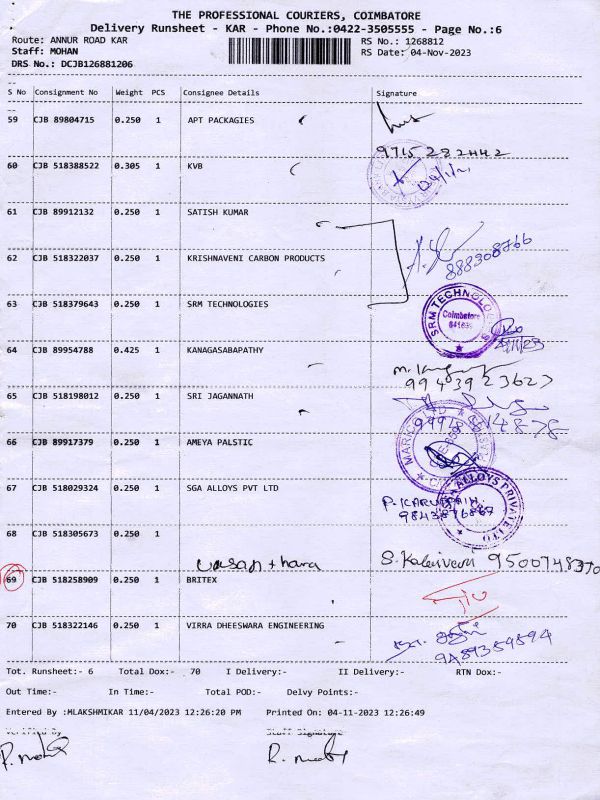 THE PROFESSIONAL COURIERS, COIMBATORE
Delivery Runsheet - KAR - Phone No.:0422-3505555 - Page No.:6
Route: ANNUR ROAD KAR RS No.: 1268812
Staff: MOHAN RS Date: 04-Nov-2023
DRS No.: DCJB126881206
S No Consignment No Weight PCS Consignee Details Signature
59 CJB 89804715 0.250 1 APT PACKAGIES
9715282442
60 CJB 518388522 0.305 1 KVB
61 CJB 89912132 0.250 1 SATISH KUMAR
62 CJB 518322037 0.250 1 KRISHNAVENI CARBON PRODUCTS
888308766
63 CJB 518379643 0.250 1 SRM TECHNOLOGIES
SRM TECHNOLOG
Coimbatore
64 CJB 89954788 0.425 1 KANAGASABAPATHY
9943923627
65 CJB 518198012 0.250 1 SRI JAGANNATH
66 CJB 89917379 0.250 1 AMEYA PALSTIC
MARICO LTD
67 CJB 518029324 0.250 1 SGA ALLOYS PVT LTD
ALLOYS PRIVATE LTD
68 CJB 518305673 0.250 1
Vasan + hara S. Kaleiveni 9500748370
69 CJB 518258909 0.250 1 BRITEX
70 CJB 518322146 0.250 1 VIRRA DHEESWARA ENGINEERING
9489359594
Tot. Runsheet:- 6 Total Dox:- 70 I Delivery:- II Delivery:- RTN Dox:-
Out Time:- In Time:- Total POD:- Delvy Points:-
Entered By :MLAKSHMIKAR 11/04/2023 12:26:20 PM Printed On: 04-11-2023 12:26:49
Verified By Staff Signature